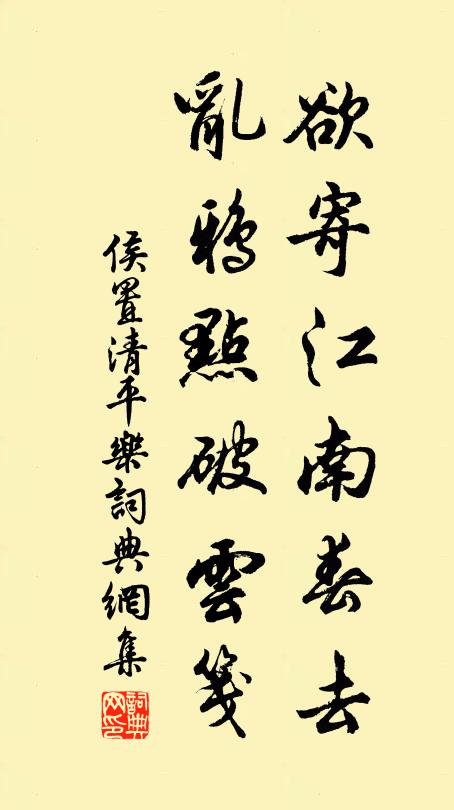 欲寄江南春去
亂鴉點破雲箋
侯置清平樂詞典網集
詞典网印